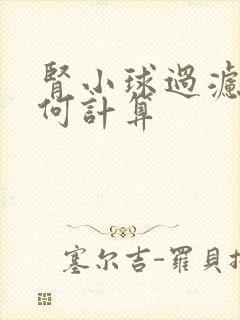 腎小球過濾
何計算
塞尔吉-羅貝